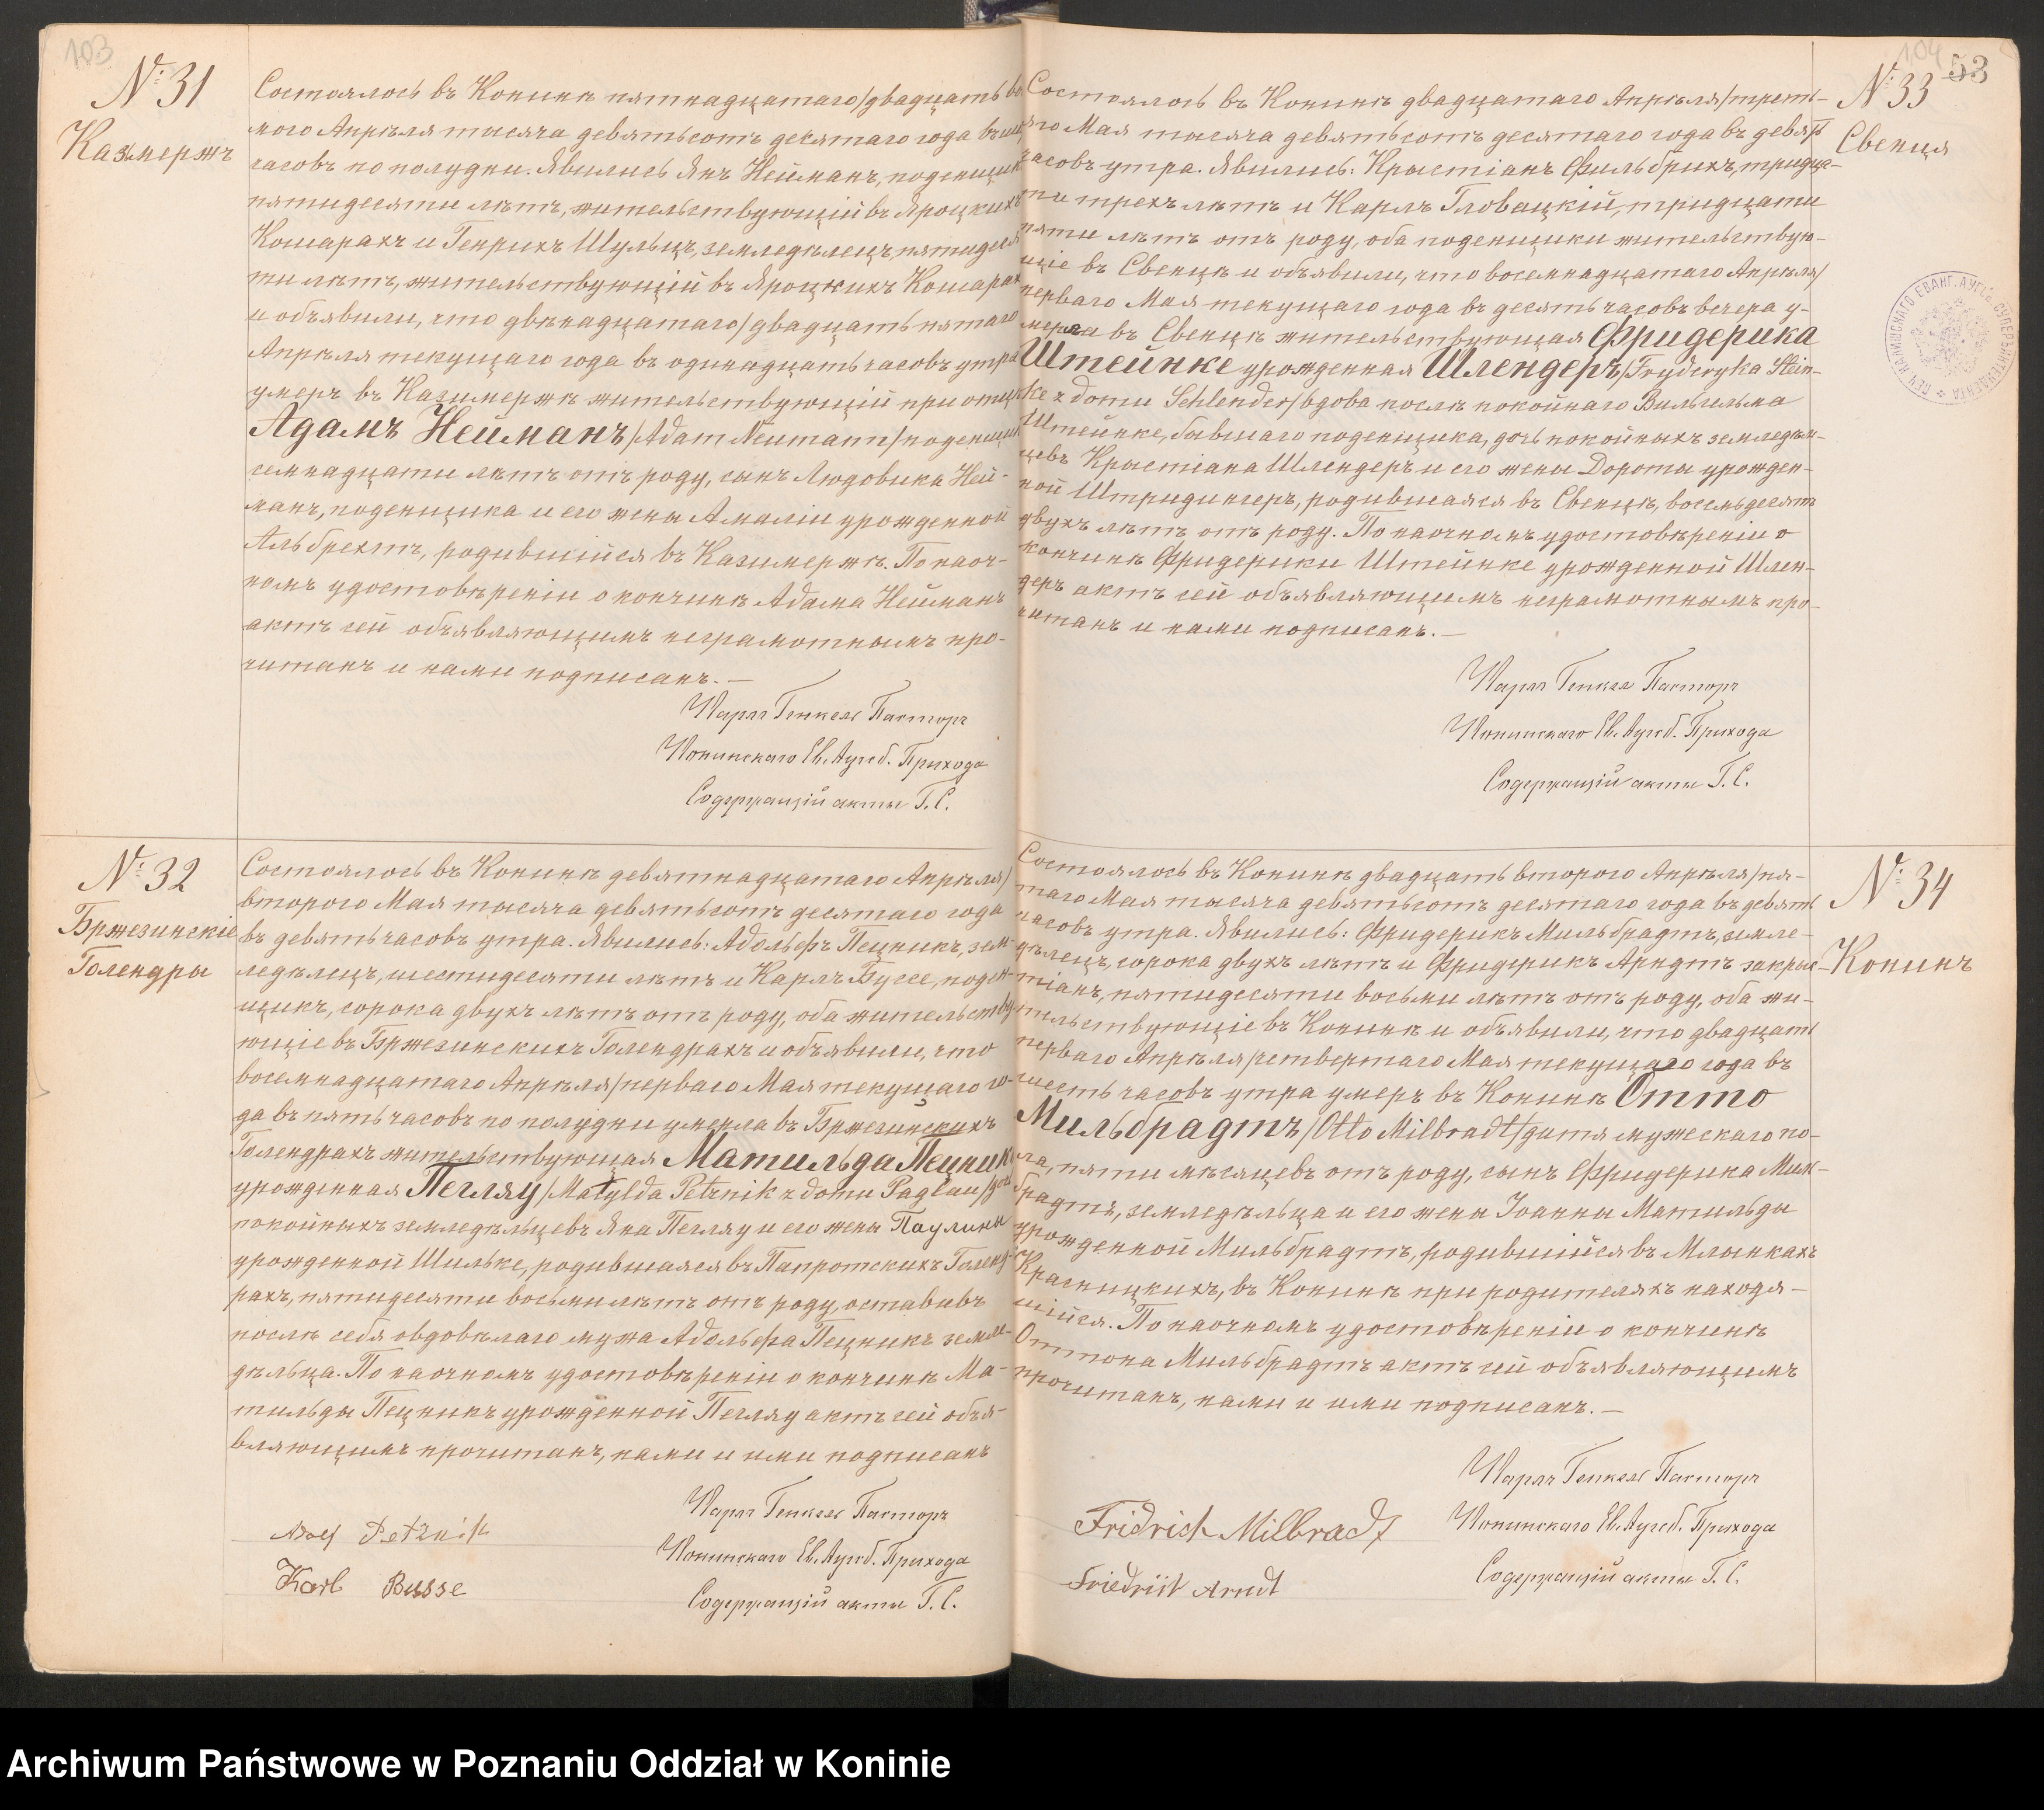 103
№ 31
Казмержъ
Состоялось въ Конинѣ пятнадцатаго/двадцать вось
мого Апрѣля тысяча девятьсотъ десятаго года въ
часовъ по полудни. Явились Янъ Нейманъ, поденщикъ
пятидесяти лѣтъ, жительствующій въ Яроцкихъ
Кошарахъ и Генрихъ Шульцъ, земледѣлецъ, пятидеся
ти лѣтъ, жительствующій въ Яроцкихъ Кошарах
и объявили, что двѣнадцатаго/двадцать пятаго
Апрѣля текущаго года въ одинадцать часовъ утра
умеръ въ Казимержѣ жительствующій при отцѣ
Адамъ Нейманъ/Adam Neumann/поденщик
семнадцати лѣтъ отъ роду, сынъ Людовика Ней-
манъ, поденщика и его жены Амаліи урожденной
Альбрехтъ, родившійся въ Казимержѣ. По наоч-
номъ удостовѣреніи о кончинѣ Адама Нейманъ
актъ сей объявляющимъ неграмотнымъ про-
читанъ и нами подписанъ. —
Карлъ Генкель Пасторъ
Конинскаго Ев. Аугсб. Прихода
Содержащій акты Г. С.
№ 32
Бржезинскіе
Голендры
Состоялось въ Конинѣ девятнадцатаго Апрѣля/
второго Мая тысяча девятьсотъ десятаго года
въ девять часовъ утра. Явились: Адольфъ Пецникъ, зем-
ледѣлецъ, шестидесяти лѣтъ и Карлъ Буссе, поден-
щикъ, сорока двухъ лѣтъ отъ роду, оба жительству
ющіе въ Бржезинскихъ Голендрахъ и объявили, что
восемнадцатаго Апрѣля/перваго Мая текущаго го-
да въ пять часовъ по полудни умерла въ Бржезинскихъ
Голендрахъ жительствующая Матильда Пецникъ
урожденная Пегляу/Matylda Petznik z domu Paglau/дочь
покойныхъ земледѣльцевъ Яна Пегляу и его жены Паулины
урожденной Шильке, родившаяся въ Папротскихъ Голенд-
рахъ, пятидесяти восьми лѣтъ отъ роду, оставивъ
послѣ себя овдовѣлаго мужа Адольфа Пецникъ земле-
дѣльца. По наочномъ удостовѣреніи о кончинѣ Ма-
тильды Пецникъ урожденной Пегляу актъ сей объя-
вляющимъ прочитанъ, нами и ими подписанъ
Карлъ Генкель Пасторъ
Конинскаго Ев. Аугсб. Прихода
Содержащій акты Г. С.
Adolf Petznik
Karl Busse
104
53
№ 33
Свенця
Состоялось въ Конинѣ двадцатаго Апрѣля/треть-
яго Мая тысяча девятьсотъ десятаго года въ девять
часовъ утра. Явились: Крыстіанъ Фильбрихъ, тридца-
ти трехъ лѣтъ и Карлъ Гловацкій, тридцати
пяти лѣтъ отъ роду, оба поденщики жительствую-
щіе въ Свенцѣ и объявили, что восемнадцатаго Апрѣля/
перваго Мая текущаго года въ десять часовъ вечера у-
мерла въ Свенцѣ жительствующая Фридерика
Штейнке урожденная Шлендеръ/Fryderyka Stein-
ke z domu Schlender/вдова послѣ покойнаго Вильгельма
Штейнке, бывшаго поденщика, дочь покойныхъ земледѣль-
цевъ Крыстіана Шлендеръ и его жены Дороты урожден-
ной Штридингеръ, родившаяся въ Свенцѣ, восемьдесятъ
двухъ лѣтъ отъ роду. По наочномъ удостовѣреніи о
кончинѣ Фридерики Штейнке урожденной Шлен-
деръ актъ сей объявляющимъ неграмотнымъ про-
читанъ и нами подписанъ. —
Карлъ Генкель Пасторъ
Конинскаго Ев. Аугсб. Прихода
Содержащій акты Г. С.
№ 34
Конинъ
Состоялось въ Конинѣ двадцать второго Апрѣля/пя-
таго Мая тысяча девятьсотъ десятаго года въ девять
часовъ утра. Явились: Фридерикъ Мильбрадтъ, земле-
дѣлецъ, сорока двухъ лѣтъ и Фридерикъ Арндтъ закрис-
тіанъ, пятидесяти восьми лѣтъ отъ роду, оба жи-
тельствующіе въ Конинѣ и объявили, что двадцать
перваго Апрѣля/четвертаго Мая текущаго года въ
шесть часовъ утра умеръ въ Конинѣ Отто
Мильбрадтъ/Otto Milbradt/дитя мужескаго по-
ла, пяти мѣсяцевъ отъ роду, сынъ Фридерика Миль-
брадтъ, земледѣльца и его жены Іоанны Матильды
урожденной Мильбрадтъ, родившійся въ Млынкахъ
Крагницкихъ, въ Конинѣ при родителяхъ находя-
щійся. По наочномъ удостовѣреніи о кончинѣ
Оттона Мильбрадтъ актъ сей объявляющимъ
прочитанъ, нами и ими подписанъ. —
Карлъ Генкель Пасторъ
Конинскаго Ев. Аугсб. Прихода
Содержащій акты Г. С.
Fridrich Milbradt
Friedrich Arndt
Archiwum Państwowe w Poznaniu Oddział w Koninie